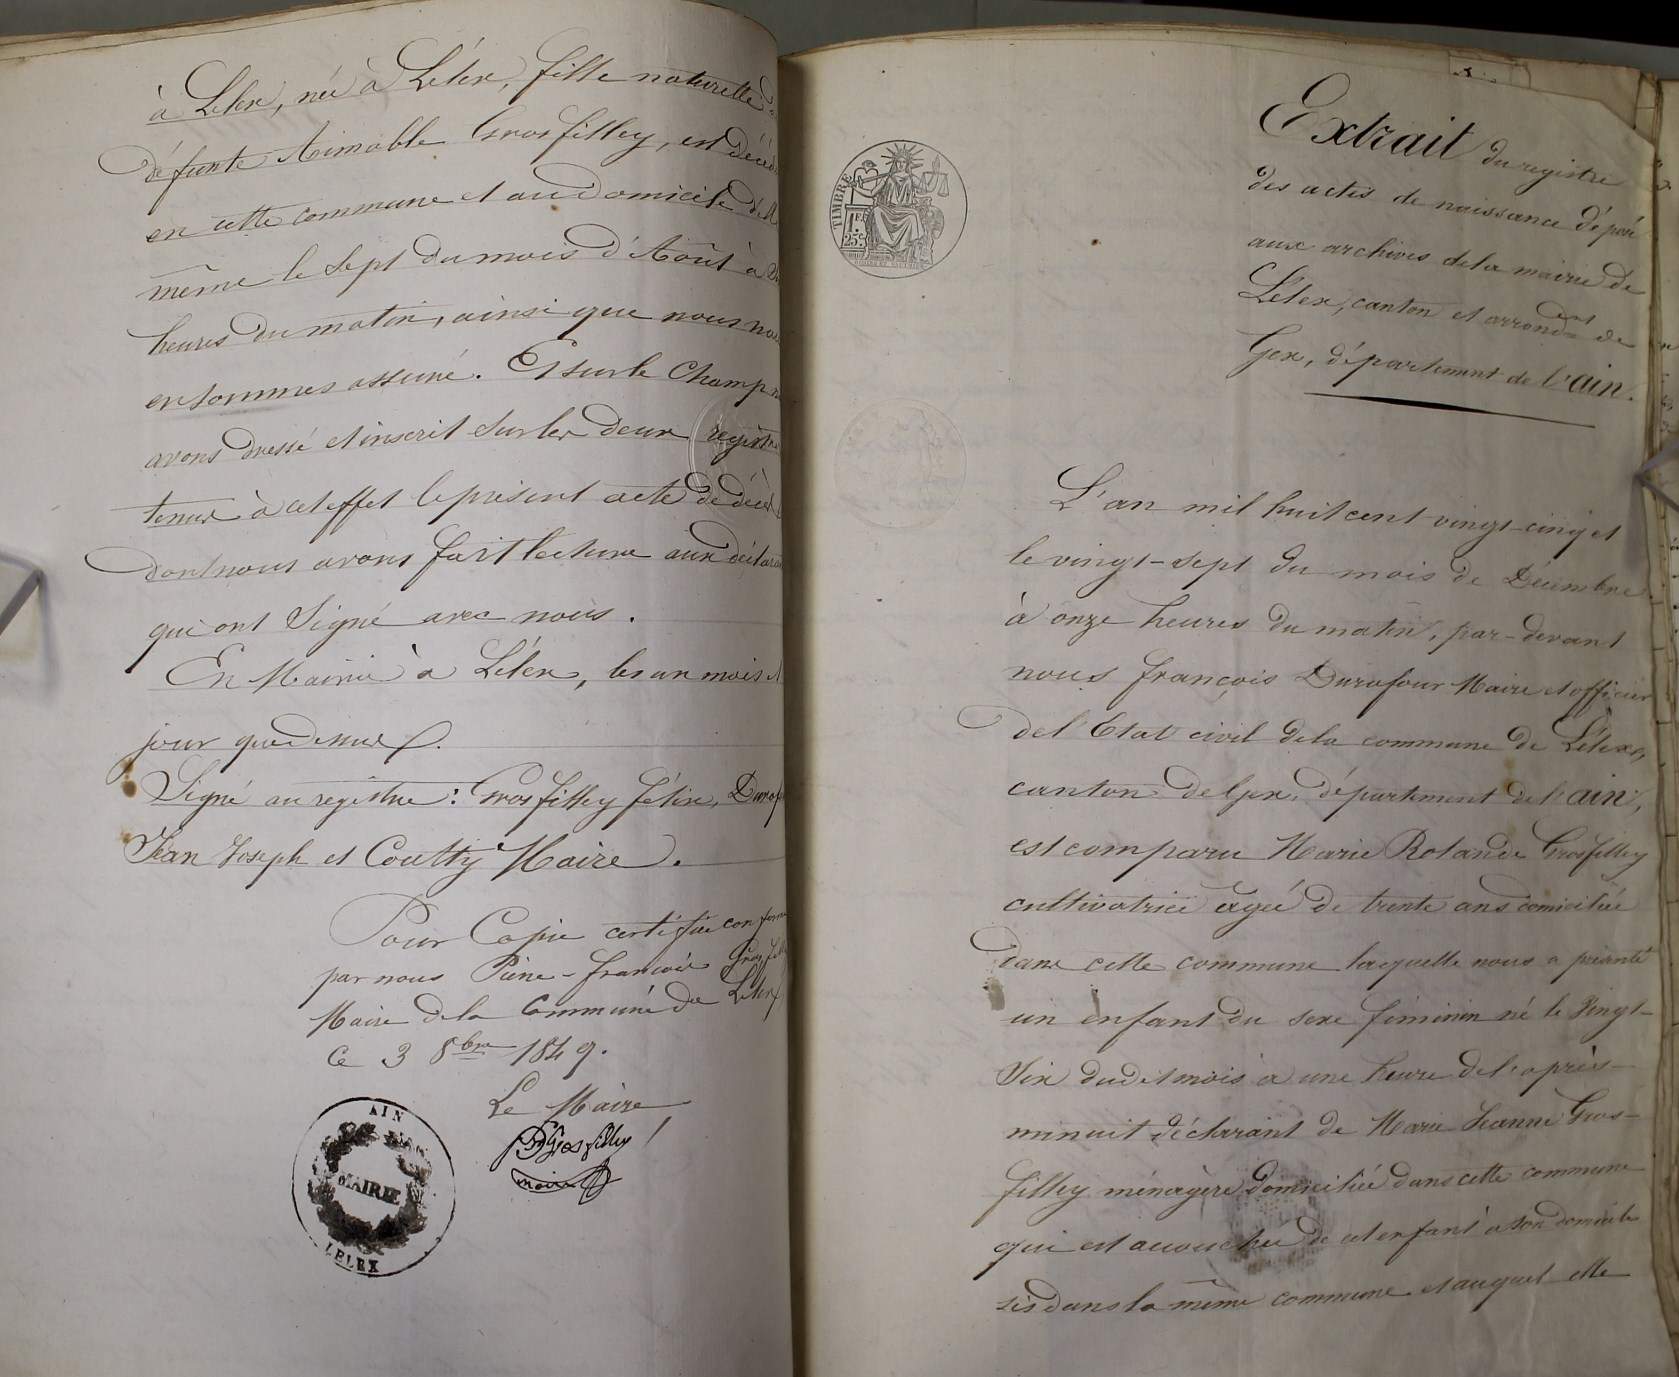 à Lélex, née à Lélex, fille naturelle
défunte Aimable Grosfilley, est
en cette commune et au domicile
même le sept du mois d'Août à
heures du matin, ainsi que nous nous
en sommes assuré. Et sur le champ
avons dressé et inscrit sur les deux registres
tenus à cet effet le présent acte de décès
dont nous avons fait lecture aux
qui ont signé avec nous.
En Mairie à Lélex, les an mois et
jour que dessus.
Signé au registre: Grosfilley félix,
Jean Joseph et Coutty Maire.
Pour Copie certifiée conforme
par nous Pierre-françois
Maire de la Commune de Lélex
Ce 3 8bre 1849.
Le Maire
Grosfilley
maire
AIN
MAIRIE
LELEX
TIMBRE
25c
Extrait du registre
des actes de naissance déposé
aux archives de la mairie de
Lélex, canton et arrondent de
Gex, département de l'ain.
L'an mil huit cent vingt-cinq et
le vingt-sept du mois de Décembre
à onze heures du matin, par-devant
nous françois Durafour Maire et officier
de l'Etat civil de la commune de Lélex,
canton de Gex, département de l'ain,
est comparu Marie Rolande Grosfilley
cultivatrice agée de trente ans domiciliée
dans cette commune laquelle nous a présenté
un enfant du sexe féminin né le Vingt-
Six dudet mois à une heure de l'après-
minuit déclarant de Marie Jeanne Gros-
filley ménagère domiciliée dans cette commune
qui est accouchée de cet enfant à son domicile
sis dans la même commune et auquel elle